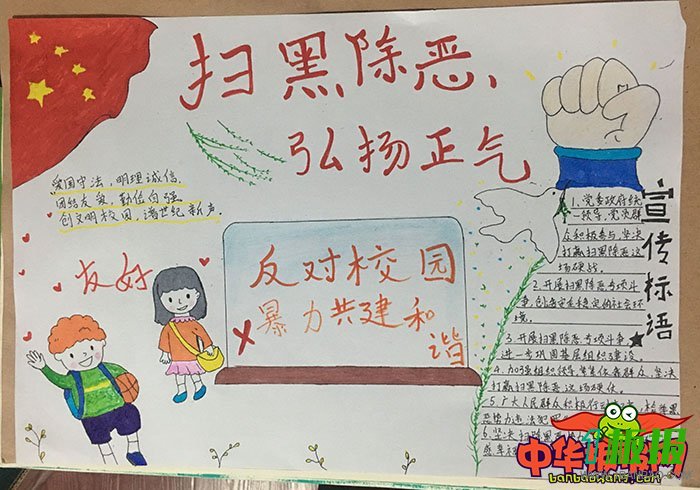 扫黑除恶、
弘扬正气
爱国守法,明理诚信
团结友爱,勤俭自强
创文明校园,谱世纪新声
友好
反对校园
暴力共建和
谐
宣传标语
1、党委政府统
一领导,党员群
众积极参与,坚决
打赢扫黑除恶这
场硬战。
2.开展扫黑除恶专项斗
争,创造安全稳定的社会环
境。
3.开展扫黑除恶专项斗争,
进一步巩固基层组织建设。
4.加强组织领导,紧紧依靠群众,坚决
打赢扫黑除恶这场硬仗。
5.广大人民群众积极行动
恶势力违法犯罪
6.坚决扫除黑恶
中华
报
banbaowang.com